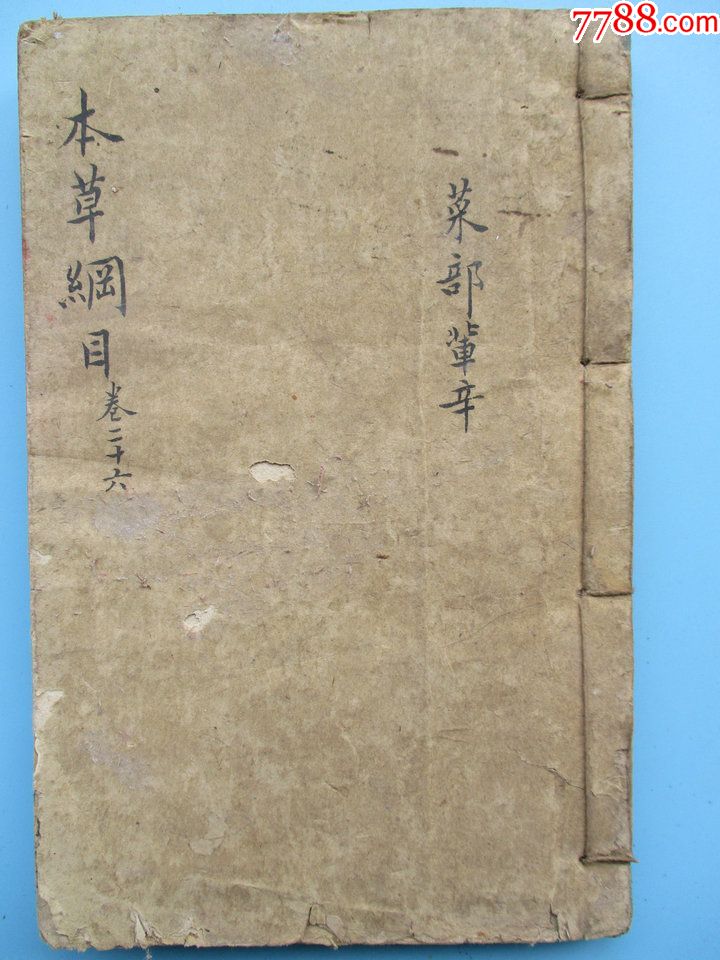 7788.com
菜部輩辛
本草綱目卷二十六